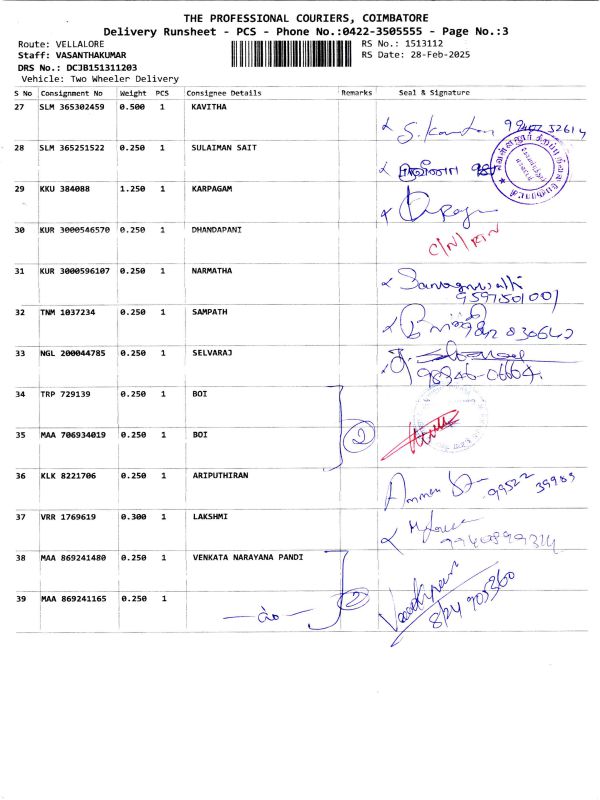 THE PROFESSIONAL COURIERS, COIMBATORE
Delivery Runsheet - PCS - Phone No.:0422-3505555 - Page No.:3
Route: VELLALORE
RS No.: 1513112
Staff: VASANTHAKUMAR
RS Date: 28-Feb-2025
DRS No.: DCJB151311203
Vehicle: Two Wheeler Delivery
S No Consignment No Weight PCS Consignee Details Remarks Seal & Signature
27 SLM 365302459 0.500 1 KAVITHA
28 SLM 365251522 0.250 1 SULAIMAN SAIT
29 KKU 384088 1.250 1 KARPAGAM
30 KUR 3000546570 0.250 1 DHANDAPANI C/N/RTN
31 KUR 3000596107 0.250 1 NARMATHA
9597501001
32 TNM 1037234 0.250 1 SAMPATH
33 NGL 200044785 0.250 1 SELVARAJ
34 TRP 729139 0.250 1 BOI
35 MAA 706934019 0.250 1 BOI 2
36 KLK 8221706 0.250 1 ARIPUTHIRAN 99522 39989
37 VRR 1769619 0.300 1 LAKSHMI
9940899314
38 MAA 869241480 0.250 1 VENKATA NARAYANA PANDI
39 MAA 869241165 0.250 1 2